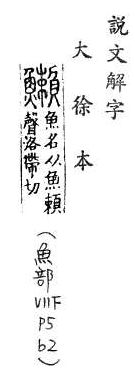 說文解字
大徐本
魚名从魚賴
聲洛帶切
(魚部
VIIF
P5
b2)